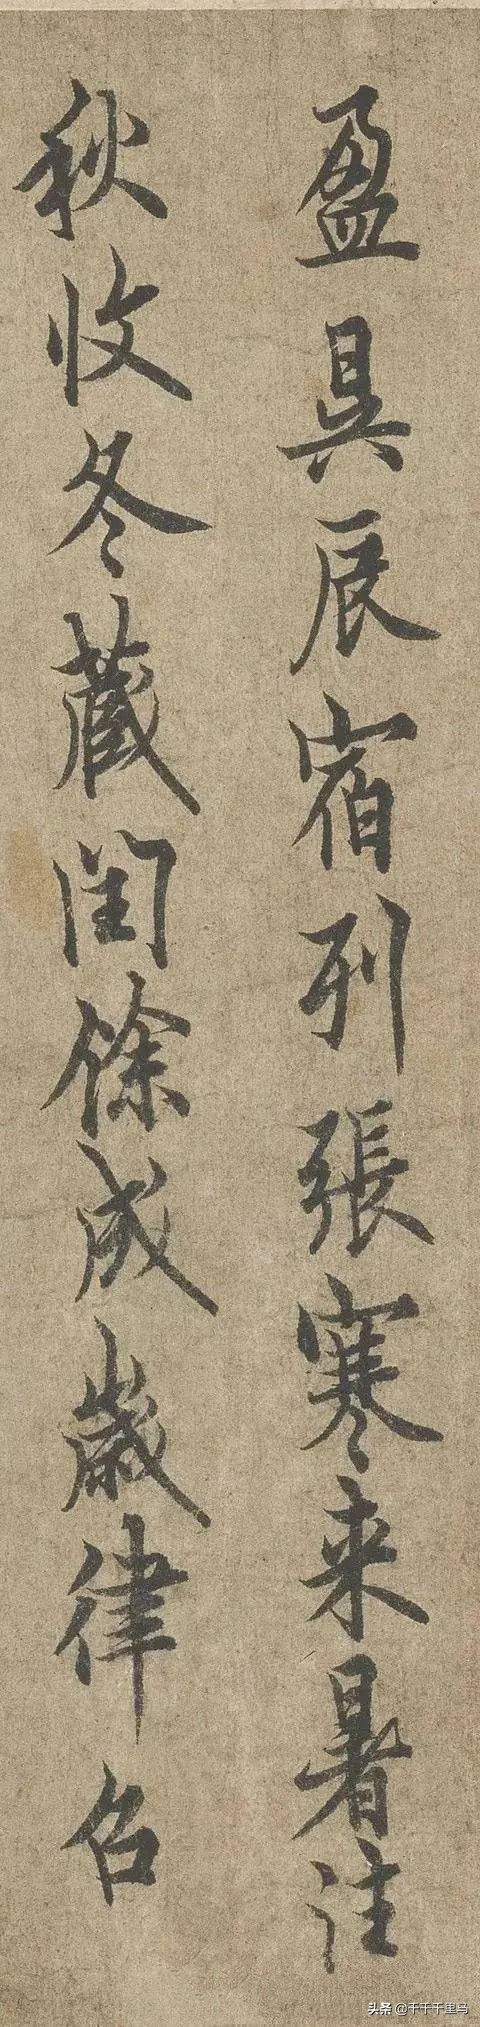 盈昃辰宿列張寒来暑往
秋收冬蔵閏餘成歳律召
头条 @千千千里马